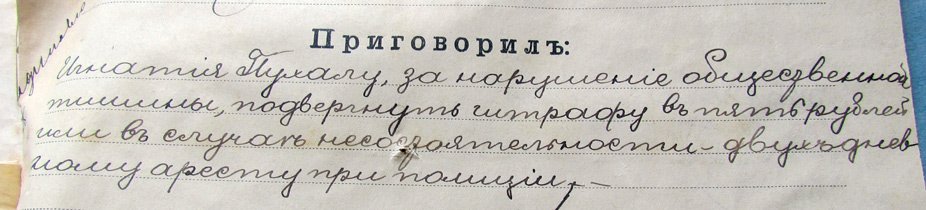 Приговорилъ:
Игнатія Пухалу, за нарушеніе общественной
тишины, подвергнуть штрафу въ пять рублей
или въ случаѣ несостоятельности – двухъднев
ному аресту при полиціи, –